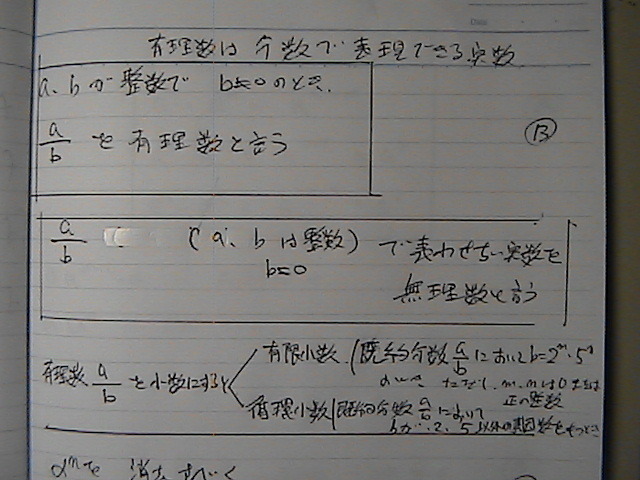 有理数は分数で表現できる実数
a、bが整数で b≠0のとき、
a/b を有理数と言う
13
a/b (a、bは整数) で表わせない実数を
b≠0
無理数と言う
有理数 a/b を小数にすると
有限小数 (既約分数 a/b において b=2^m・5^n
のとき ただし、m、nは0または
正の整数
循環小数 (既約分数 a/b において
bが 2、5以外の素因数をもつとき